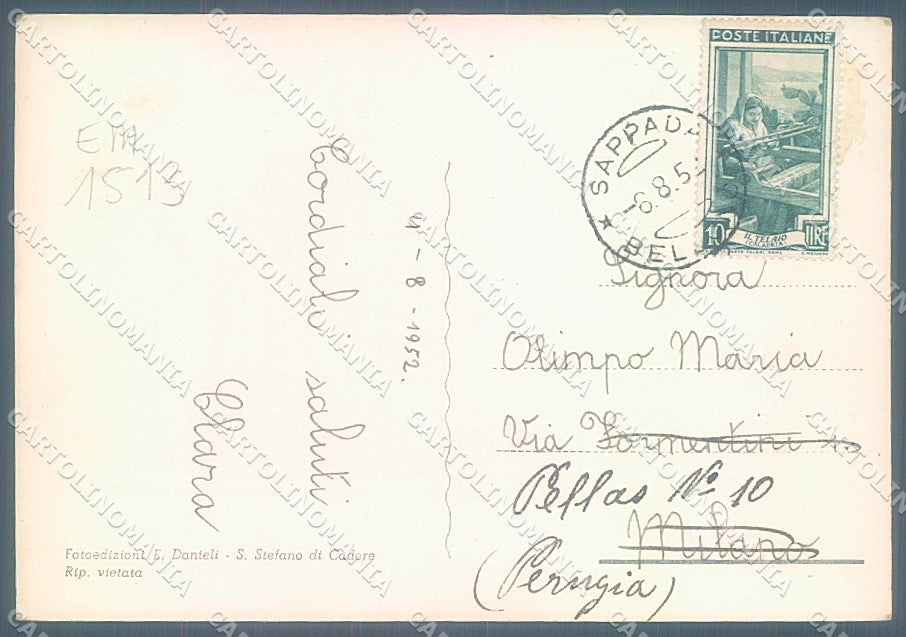 ETA
1515
4-8-1952.
Cordiali saluti
Clara
Fotoedizioni E. Danieli - S. Stefano di Cadore
Rip. vietata
POSTE ITALIANE
IL TELAIO
(CALABRIA)
10 LIRE
SAPPADA
-6.8.5
BEL
Signora
Olimpo Maria
Via Formentini
Pellas Nº 10
Milano
(Perugia)
CARTOLINOMANIA